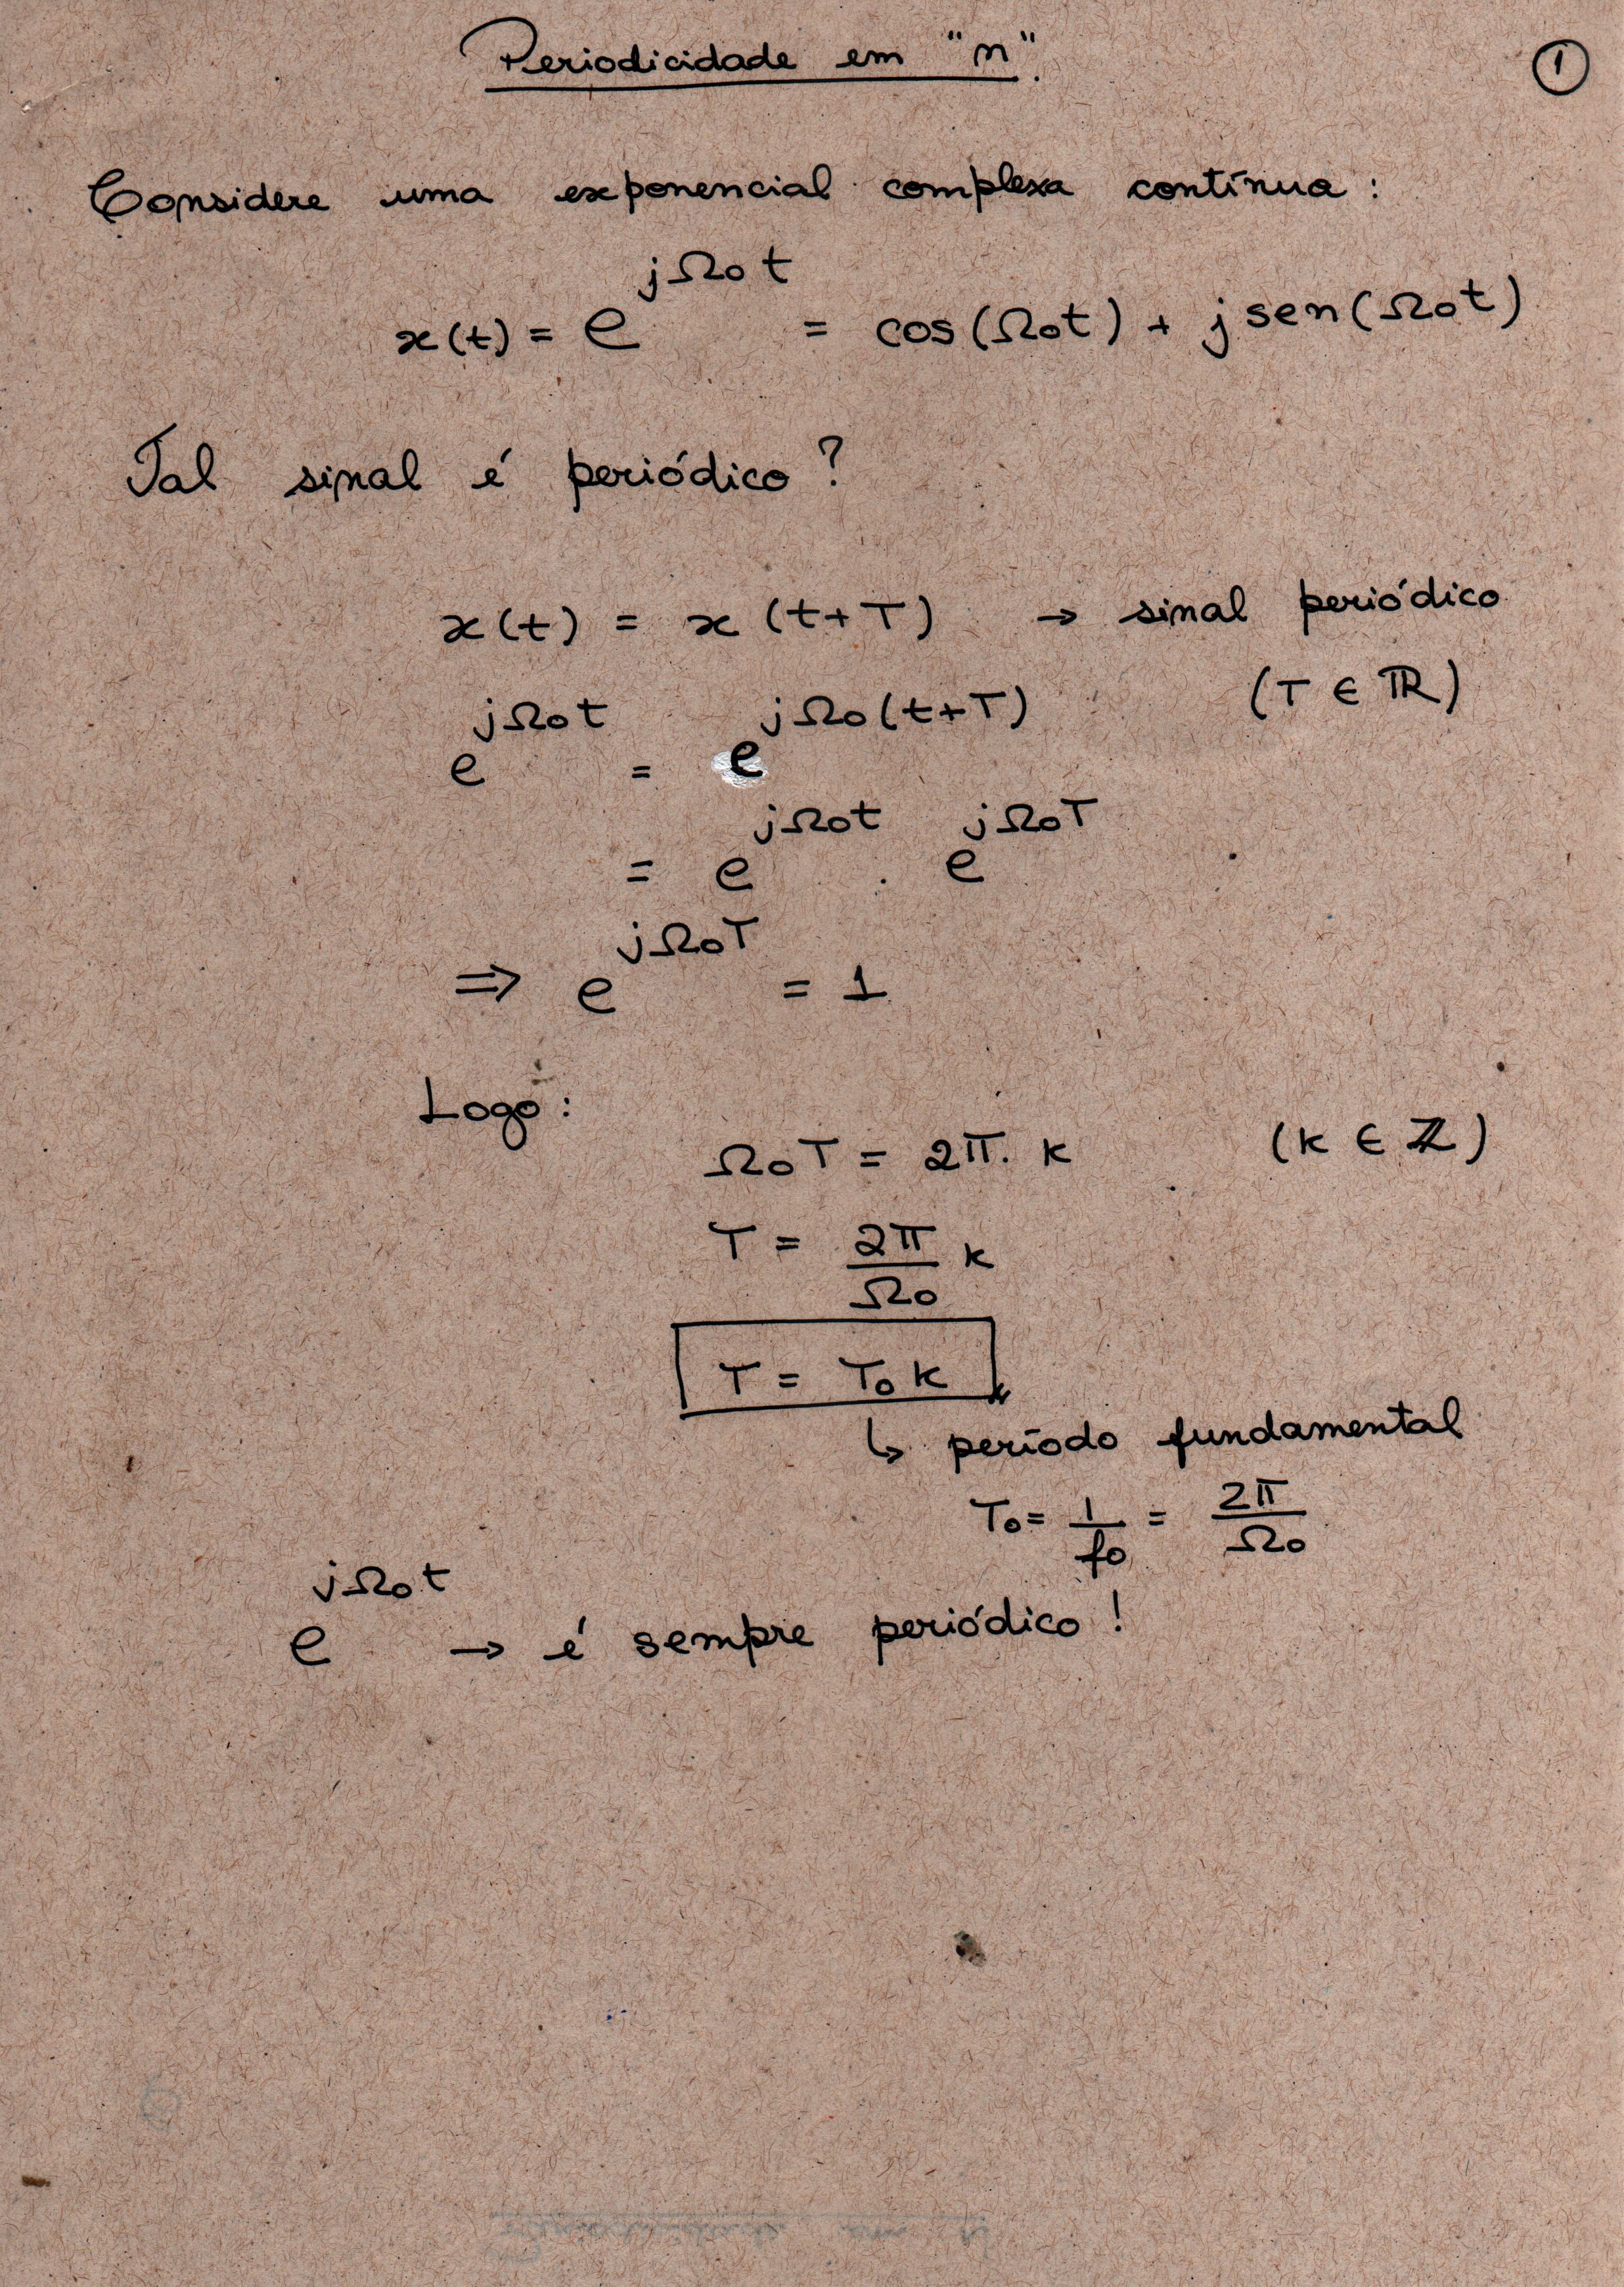 Periodicidade em "n".
1
Considere uma exponencial complexa contínua:
x(t) = e^{jΩ₀t} = cos(Ω₀t) + j sen(Ω₀t)
Tal sinal é periódico?
x(t) = x(t+T) → sinal periódico
(T ∈ ℝ)
e^{jΩ₀t} = e^{jΩ₀(t+T)}
= e^{jΩ₀t} . e^{jΩ₀T}
⇒ e^{jΩ₀T} = 1
Logo:
Ω₀T = 2π. k (k ∈ ℤ)
T = 2π/Ω₀ k
T = T₀ k
↳ período fundamental
T₀ = 1/f₀ = 2π/Ω₀
e^{jΩ₀t} → é sempre periódico!